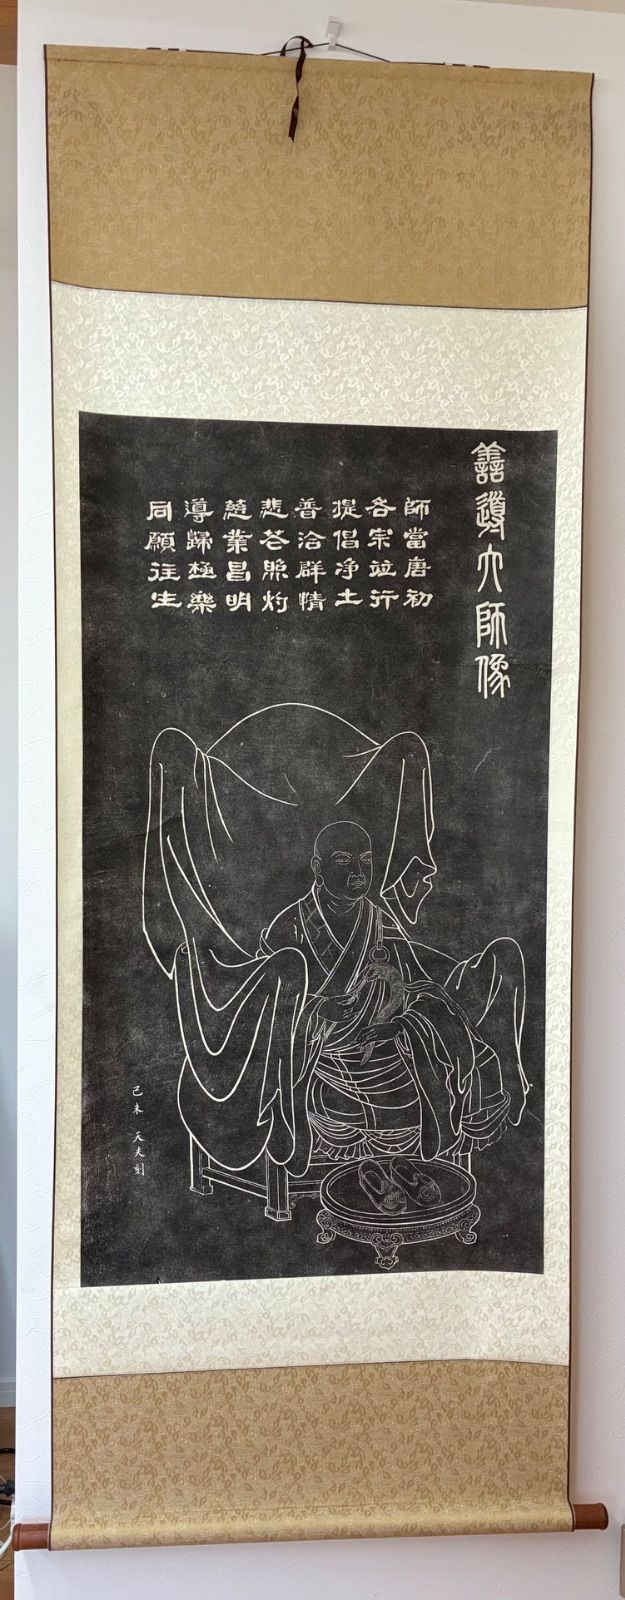 善導大師像
師當唐初
各宗竝行
提倡净土
普洽群情
悲芯照灼
慈業昌明
導歸極樂
同願往生
己未 天夫刻